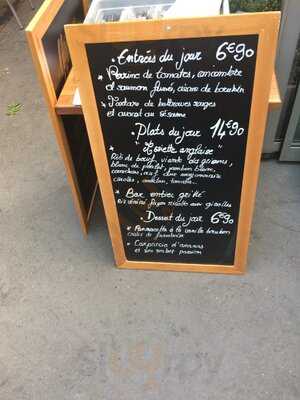 Entrées du jour 6€90
* Terrine de tomates, concombre
et saumon fumé,
* Tartare de betteraves rouges
et avocat au sésame
Plats du jour 14€90
"Assiette anglaise"
Rôti de boeuf, viande des grisons,
blanc de poulet, jambon blanc,
cornichons, œuf dur mayonnaise
tomate...
* Bar entier grillé
façon risotto aux girolles
Dessert du jour 6€90
* Pannacotta à la vanille bourbon
coulis de framboise
* Carpaccio d'ananas
et son sorbet passion